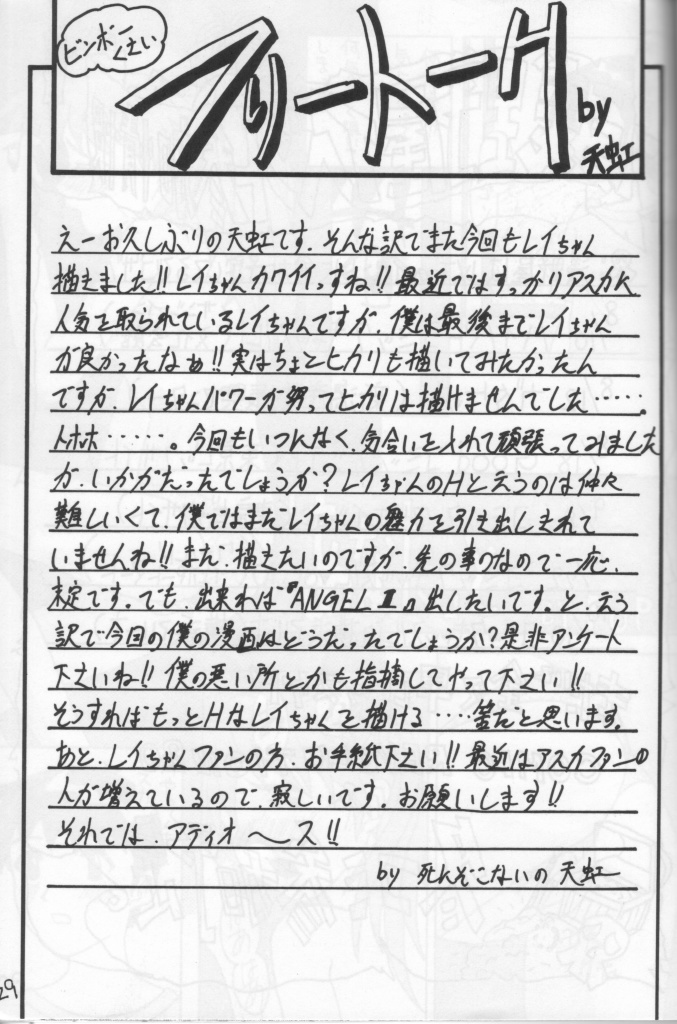 ビンボー
くさい
フリートーク
by
天虹
えーお久しぶりの天虹です.そんな訳でまた今回もレイちゃん
描きました!!レイちゃんカワイイっすね!!最近ではすっかりアスカに
人気を取られているレイちゃんですが、僕は最後までレイちゃん
が良かったなぁ!!実はちょとヒカリも描いてみたかったん
ですが、レイちゃんパワーが努ってヒカリは描けませんでした……。
トホホ……。今回もいつになく、気合いを入れて頑張ってみました
が、いかがだったでしょうか?レイちゃんのHと云うのは仲々
難しいくて、僕ではまだレイちゃんの魅力を引き出しきれて
いませんね!!まだ、描きたいのですが、先の事なので一応、
未定です。でも、出来れば『ANGEL Ⅱ』出したいです。と、云う
訳で今回の僕の漫画はどうだったでしょうか?是非アンケート
下さいね!!僕の悪い所とかも指摘してやって下さい!!
そうすればもっとHなレイちゃんを描ける……筈だと思います。
あと、レイちゃんファンの方、お手紙下さい!!最近はアスカファンの
人が増えているので、寂しいです。お願いします!!
それでは、アディオ〜ス!!
by 死んぞこないの 天虹
29